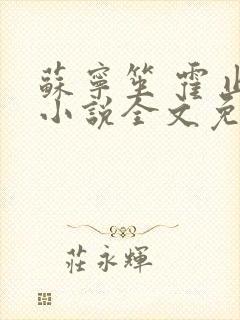 蘇寧笙 霍
小說全文免
莊永輝